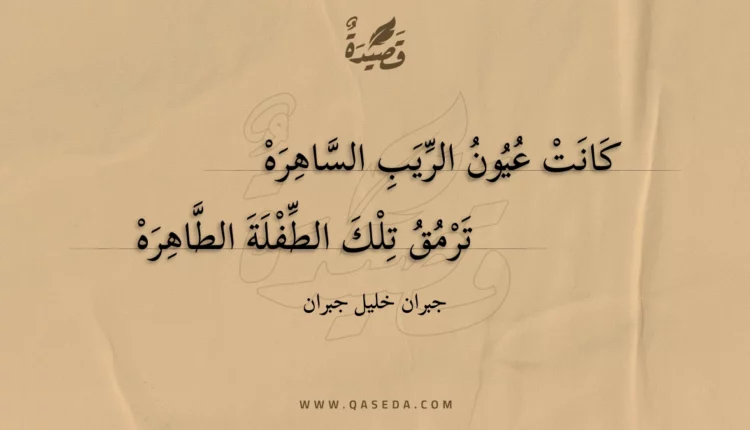 قَصِيدَةٌ
كَانَتْ عُيُونُ الرِّيَبِ السَّاهِرَهْ
تَرْمُقُ تِلْكَ الطِّفْلَةَ الطَّاهِرَهْ
جبران خليل جبران
WWW.QASEDA.COM